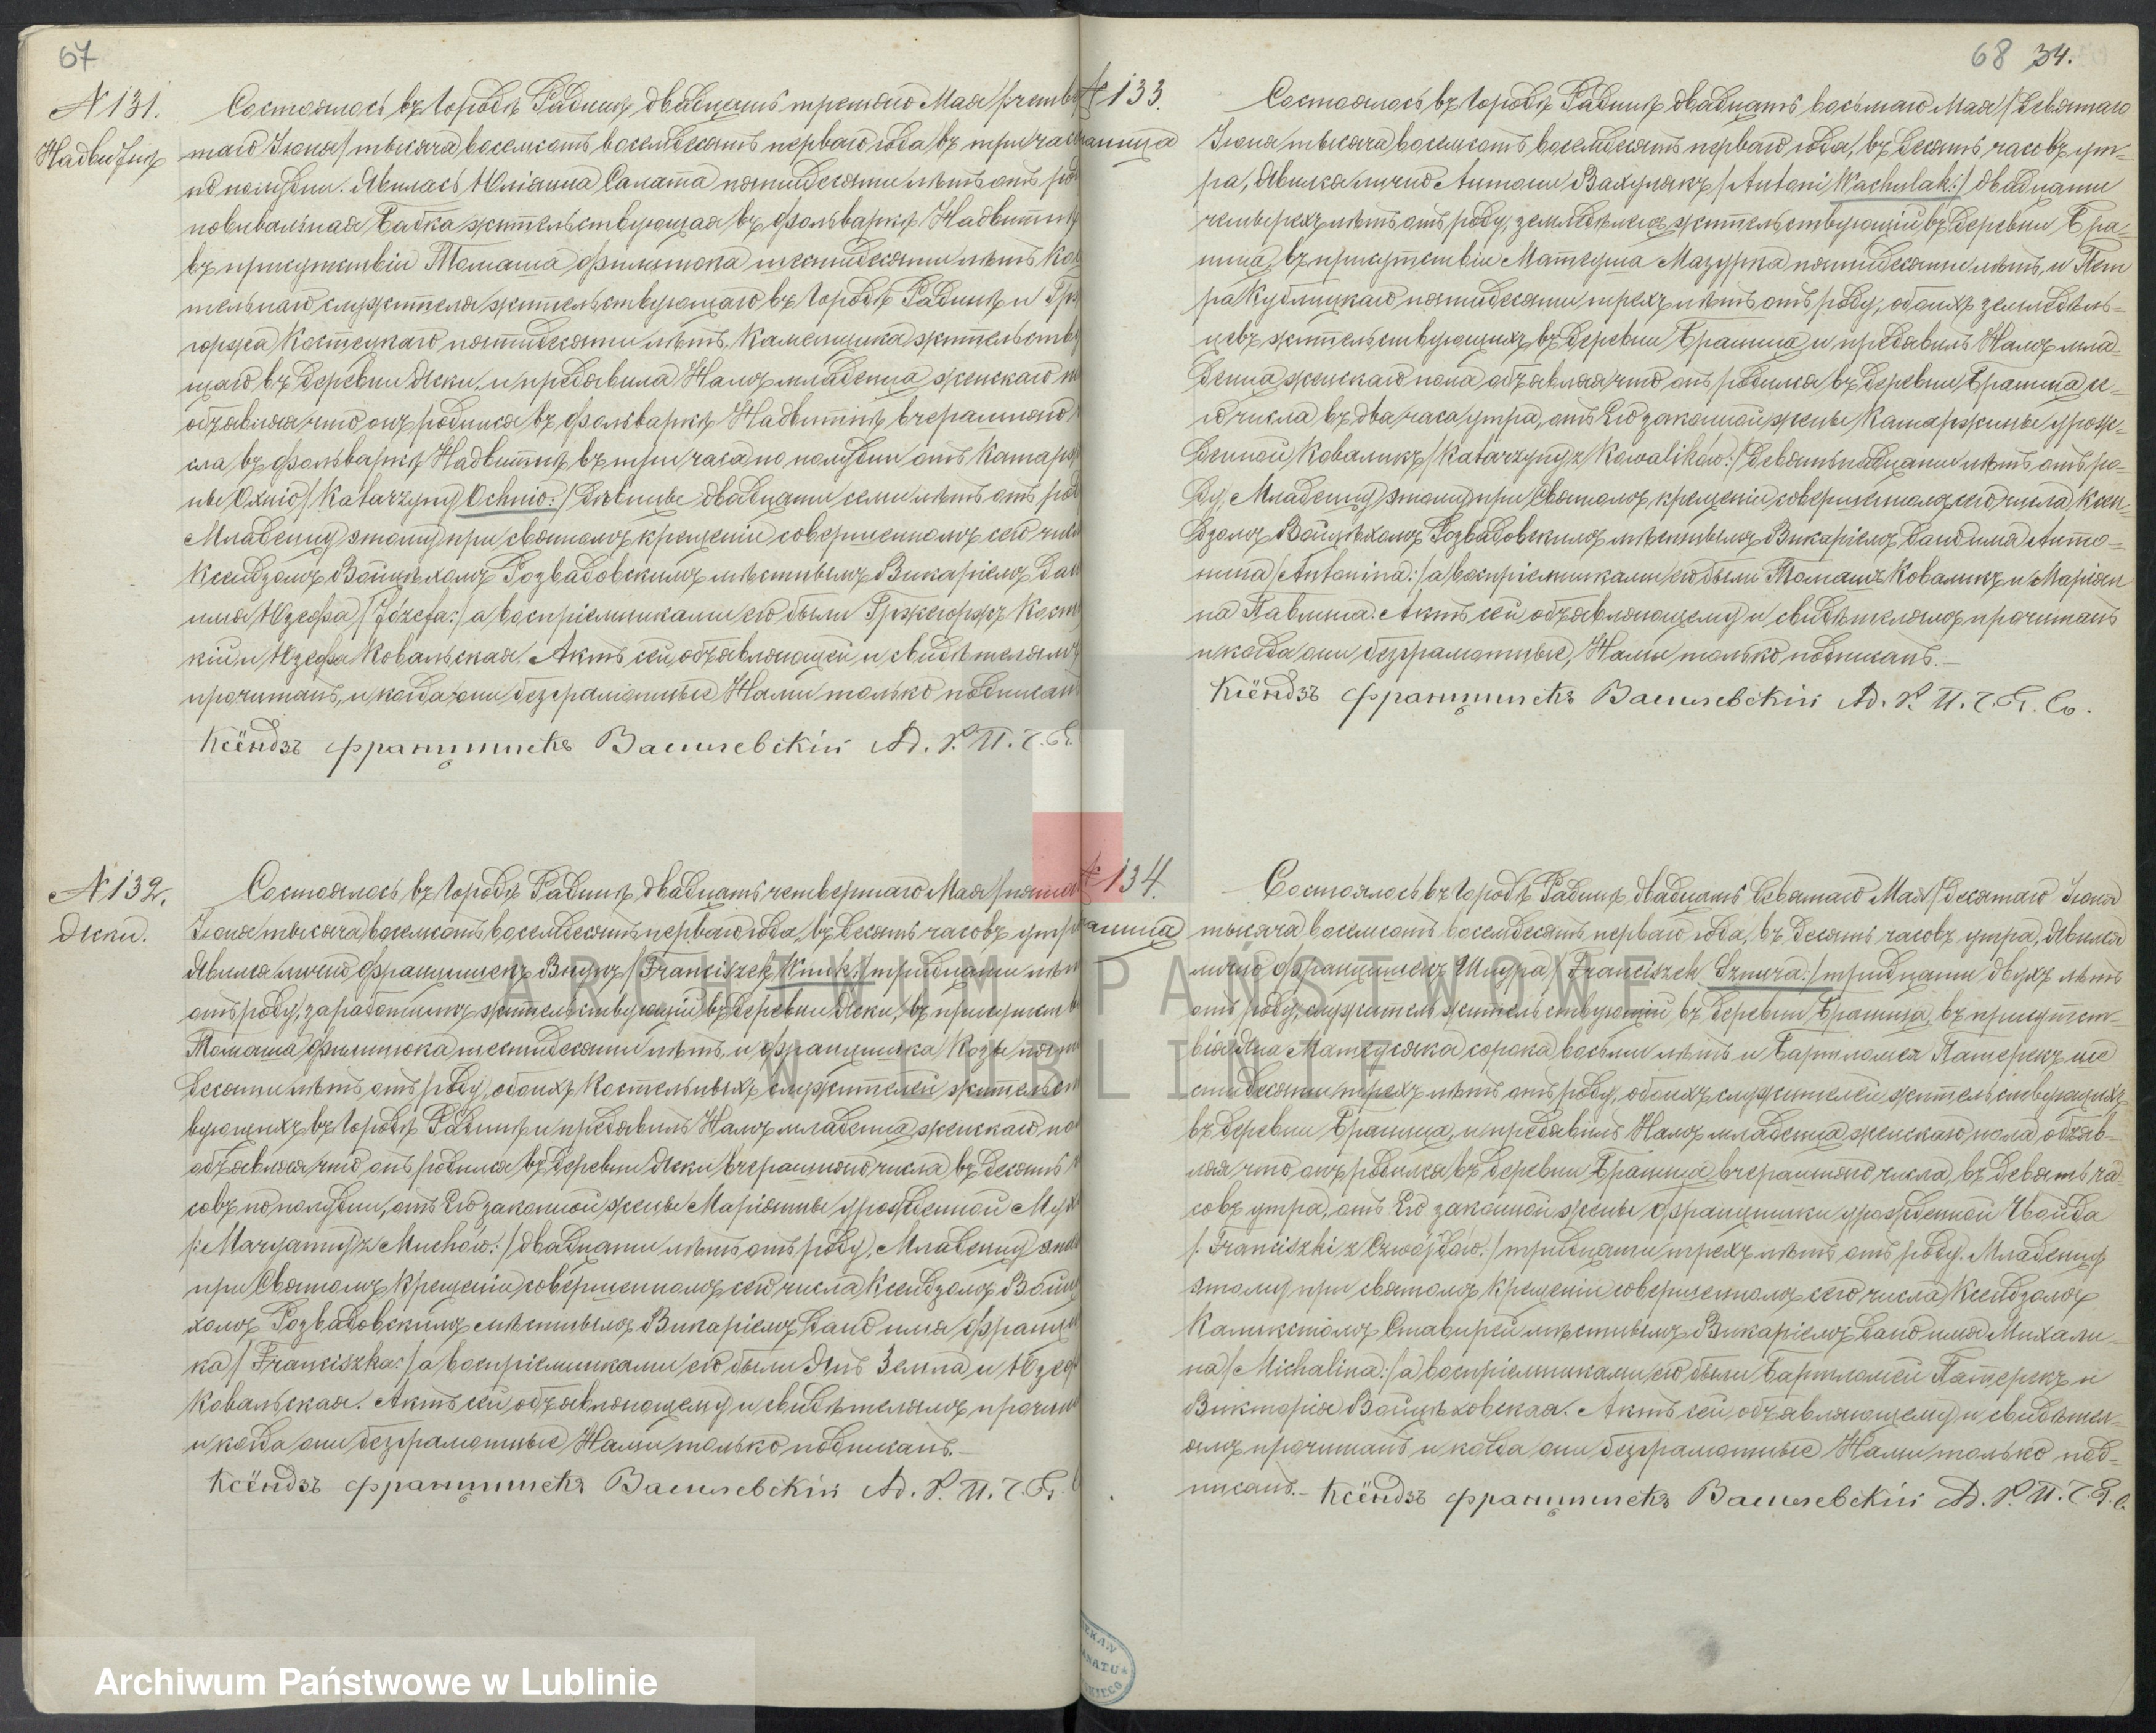 67
N 131.
Надвитнѣ
Состоялось въ городѣ Радинѣ двадцать третяго Мая /четвер
таго Іюня/ тысяча восемсотъ восемдесять перваго года, въ три час
по полудни. Явилась Юліанна Салата пятидесяти лѣтъ отъ род
повивальная бабка жительствующая въ фольваркѣ Надвитнѣ
въ присутствіи Томаша Филипюка шестидесяти лѣтъ Кос
тельнаго служителя жительствующаго въ городѣ Радинѣ и Грж
горжа Костецкаго пятидесяти лѣтъ, каменщика жительству
щаго въ деревни Яски, и предявила Намъ младенца женскаго п
объявляя что онъ родился въ фольваркѣ Надвитнѣ вчерашняго
сла въ фольваркѣ Надвитнѣ въ три часа по полудни отъ Катарж
ны Охніо /Katarzyny Ochnio:/ дѣвицы двадцати семи лѣтъ отъ род
Младенцу этому при святомъ крещеніи совершенномъ сего чис
Ксендзомъ Войцѣхомъ Розвадовскимъ мѣстнымъ Викаріемъ дан
имя Юзефа /Józefa:/ а воспріемниками его были Гржегоржъ Кост
кій и Юзефа Ковальская. Актъ сей объявляющей и свидѣтелямъ
прочитанъ, и когда они безграмотные Нами только подписан
Ксёндзъ Францишекъ Василевскій Ад. Р. П. Ч. Г.
N 132.
Яски.
Состоялось въ городѣ Радинѣ двадцать четвертаго Мая /пятаг
Іюня/ тысяча восемсотъ восемдесять перваго года, въ десять часовъ утра
Явился лично Францишекъ Внукъ /Franciszek Wnuk:/ тридцати лѣт
отъ роду, заработникъ жительствующій въ деревни Яски, въ присутств
Томаша Филипюка шестидесяти лѣтъ, и Францишка Козы пяти
десяти лѣтъ отъ роду, обоихъ костельныхъ служителей жительст
вующихъ въ городѣ Радинѣ и предявилъ Намъ младенца женскаго по
объявляя что онъ родился въ деревни Яски вчерашняго числа въ десять
совъ по полудни, отъ Его законной жены Маріянны урожденной Мух
/:Maryanny z Muchów:/ двадцати лѣтъ отъ роду. Младенцу это
при Святомъ Крещеніи совершенномъ сего числа Ксендзомъ Войц
хомъ Розвадовскимъ мѣстнымъ Викаріемъ дано имя Францш
ка /Franciszka:/ а воспріемниками его были Янъ Земла и Юзеф
Ковальская. Актъ сей объявляющему и свидѣтелямъ прочит
и когда они безграмотные Нами только подписанъ.-
Ксёндзъ Францишекъ Василевскій Ад. Р. П. Ч. Г.
68 34.
N 133.
аница
Состоялось въ городѣ Радинѣ двадцать восьмаго Мая /девятаго
Іюня/ тысяча восемсотъ восемдесять перваго года, въ десять часовъ ут-
ра, Явился лично Антони Вахулякъ /Antoni Wachulak:/ двадцати
четырехъ лѣтъ отъ роду, земледѣлецъ жительствующій въ деревни Бра-
ница, въ присутствіи Матеуша Мазурка пятидесяти лѣтъ, и Пет
ра Кублицкаго пятидесяти трехъ лѣтъ отъ роду, обоихъ земледѣль-
цевъ жительствующихъ въ деревни Браница, и предявилъ Намъ мла-
денца женскаго пола объявляя что онъ родился въ деревни Браница се-
го числа въ два часа утра, отъ Его законной жены Катаржины урож-
денной Коваликъ /Katarzyny z Kowalików:/ девятьнадцати лѣтъ отъ ро-
ду, Младенцу этому при Святомъ крещеніи совершенномъ сего числа Ксен-
дзомъ Войцѣхомъ Розвадовскимъ мѣстнымъ Викаріемъ дано имя Анто-
нина /Antonina:/ а воспріемниками его были Томашъ Коваликъ и Маріян
на Павлина. Актъ сей объявляющему и свидѣтелямъ прочитанъ
и когда они безграмотные, Нами только подписанъ.-
Ксёндзъ Францишекъ Василевскій Ад. Р. П. Ч. Г. С.
N 134.
аница
Состоялось въ городѣ Радинѣ двадцать девятаго Мая /десятаго Іюня
тысяча восемсотъ восемдесять перваго года, въ десять часовъ утра, Явился
лично Францишекъ Шмура /Franciszek Szmura:/ тридцати двухъ лѣтъ
отъ роду, служитель жительствующій въ деревни Браница, въ присутст-
віи Яна Матусяка сорока восьми лѣтъ и Бартломея Патерекъ ше
стидесяти трехъ лѣтъ отъ роду, обоихъ служителей жительствующихъ
въ деревни Браница, и предявилъ Намъ младенца женскаго пола объяв-
ляя что онъ родился въ деревни Браница вчерашняго числа, въ девять ча
совъ утра, отъ Его законной жены Францишки урожденной Чвойда
/:Franciszki z Czwojdów:/ тридцати трехъ лѣтъ отъ роду. Младенцу
этому при святомъ Крещеніи совершенномъ сего числа Ксендзомъ
Каликстомъ Ставирей мѣстнымъ Викаріемъ дано имя Михали-
на /Michalina:/ а воспріемниками его были Бартломей Патерекъ и
Викторія Войцѣховская. Актъ сей объявляющему и свидѣтел-
ямъ прочитанъ и когда они безграмотные Нами только под-
писанъ.- Ксёндзъ Францишекъ Василевскій Ад. Р. П. Ч. Г. С.
ARCHIWUM PAŃSTWOWE
W LUBLINIE
Archiwum Państwowe w Lublinie